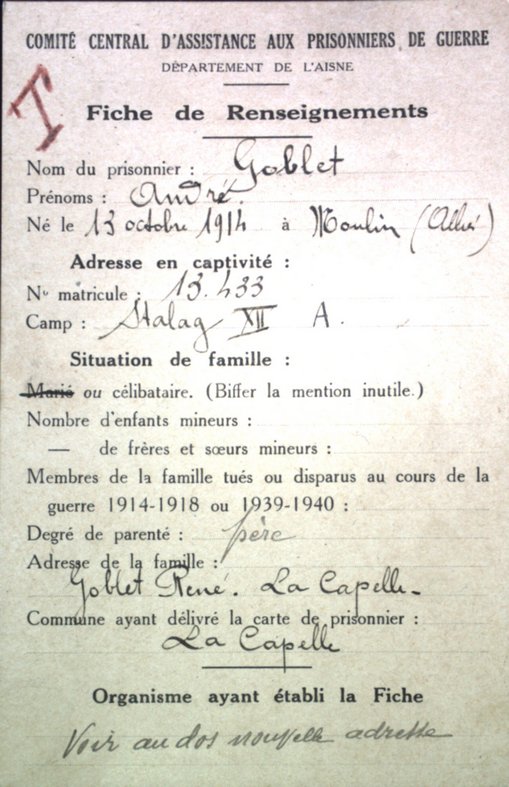 COMITÉ CENTRAL D'ASSISTANCE AUX PRISONNIERS DE GUERRE
DÉPARTEMENT DE L'AISNE
T
Fiche de Renseignements
Nom du prisonnier : Goblet
Prénoms : André.
Né le 13 octobre 1914 à Moulin (Allier)
Adresse en captivité :
N° matricule : 13.433
Camp : Stalag XII A.
Situation de famille :
Marié ou célibataire. (Biffer la mention inutile.)
Nombre d'enfants mineurs :
— de frères et sœurs mineurs :
Membres de la famille tués ou disparus au cours de la
guerre 1914-1918 ou 1939-1940 :
Degré de parenté : père
Adresse de la famille :
Goblet René. La Capelle-
Commune ayant délivré la carte de prisonnier :
La Capelle
Organisme ayant établi la Fiche
Voir au dos nouvelle adresse